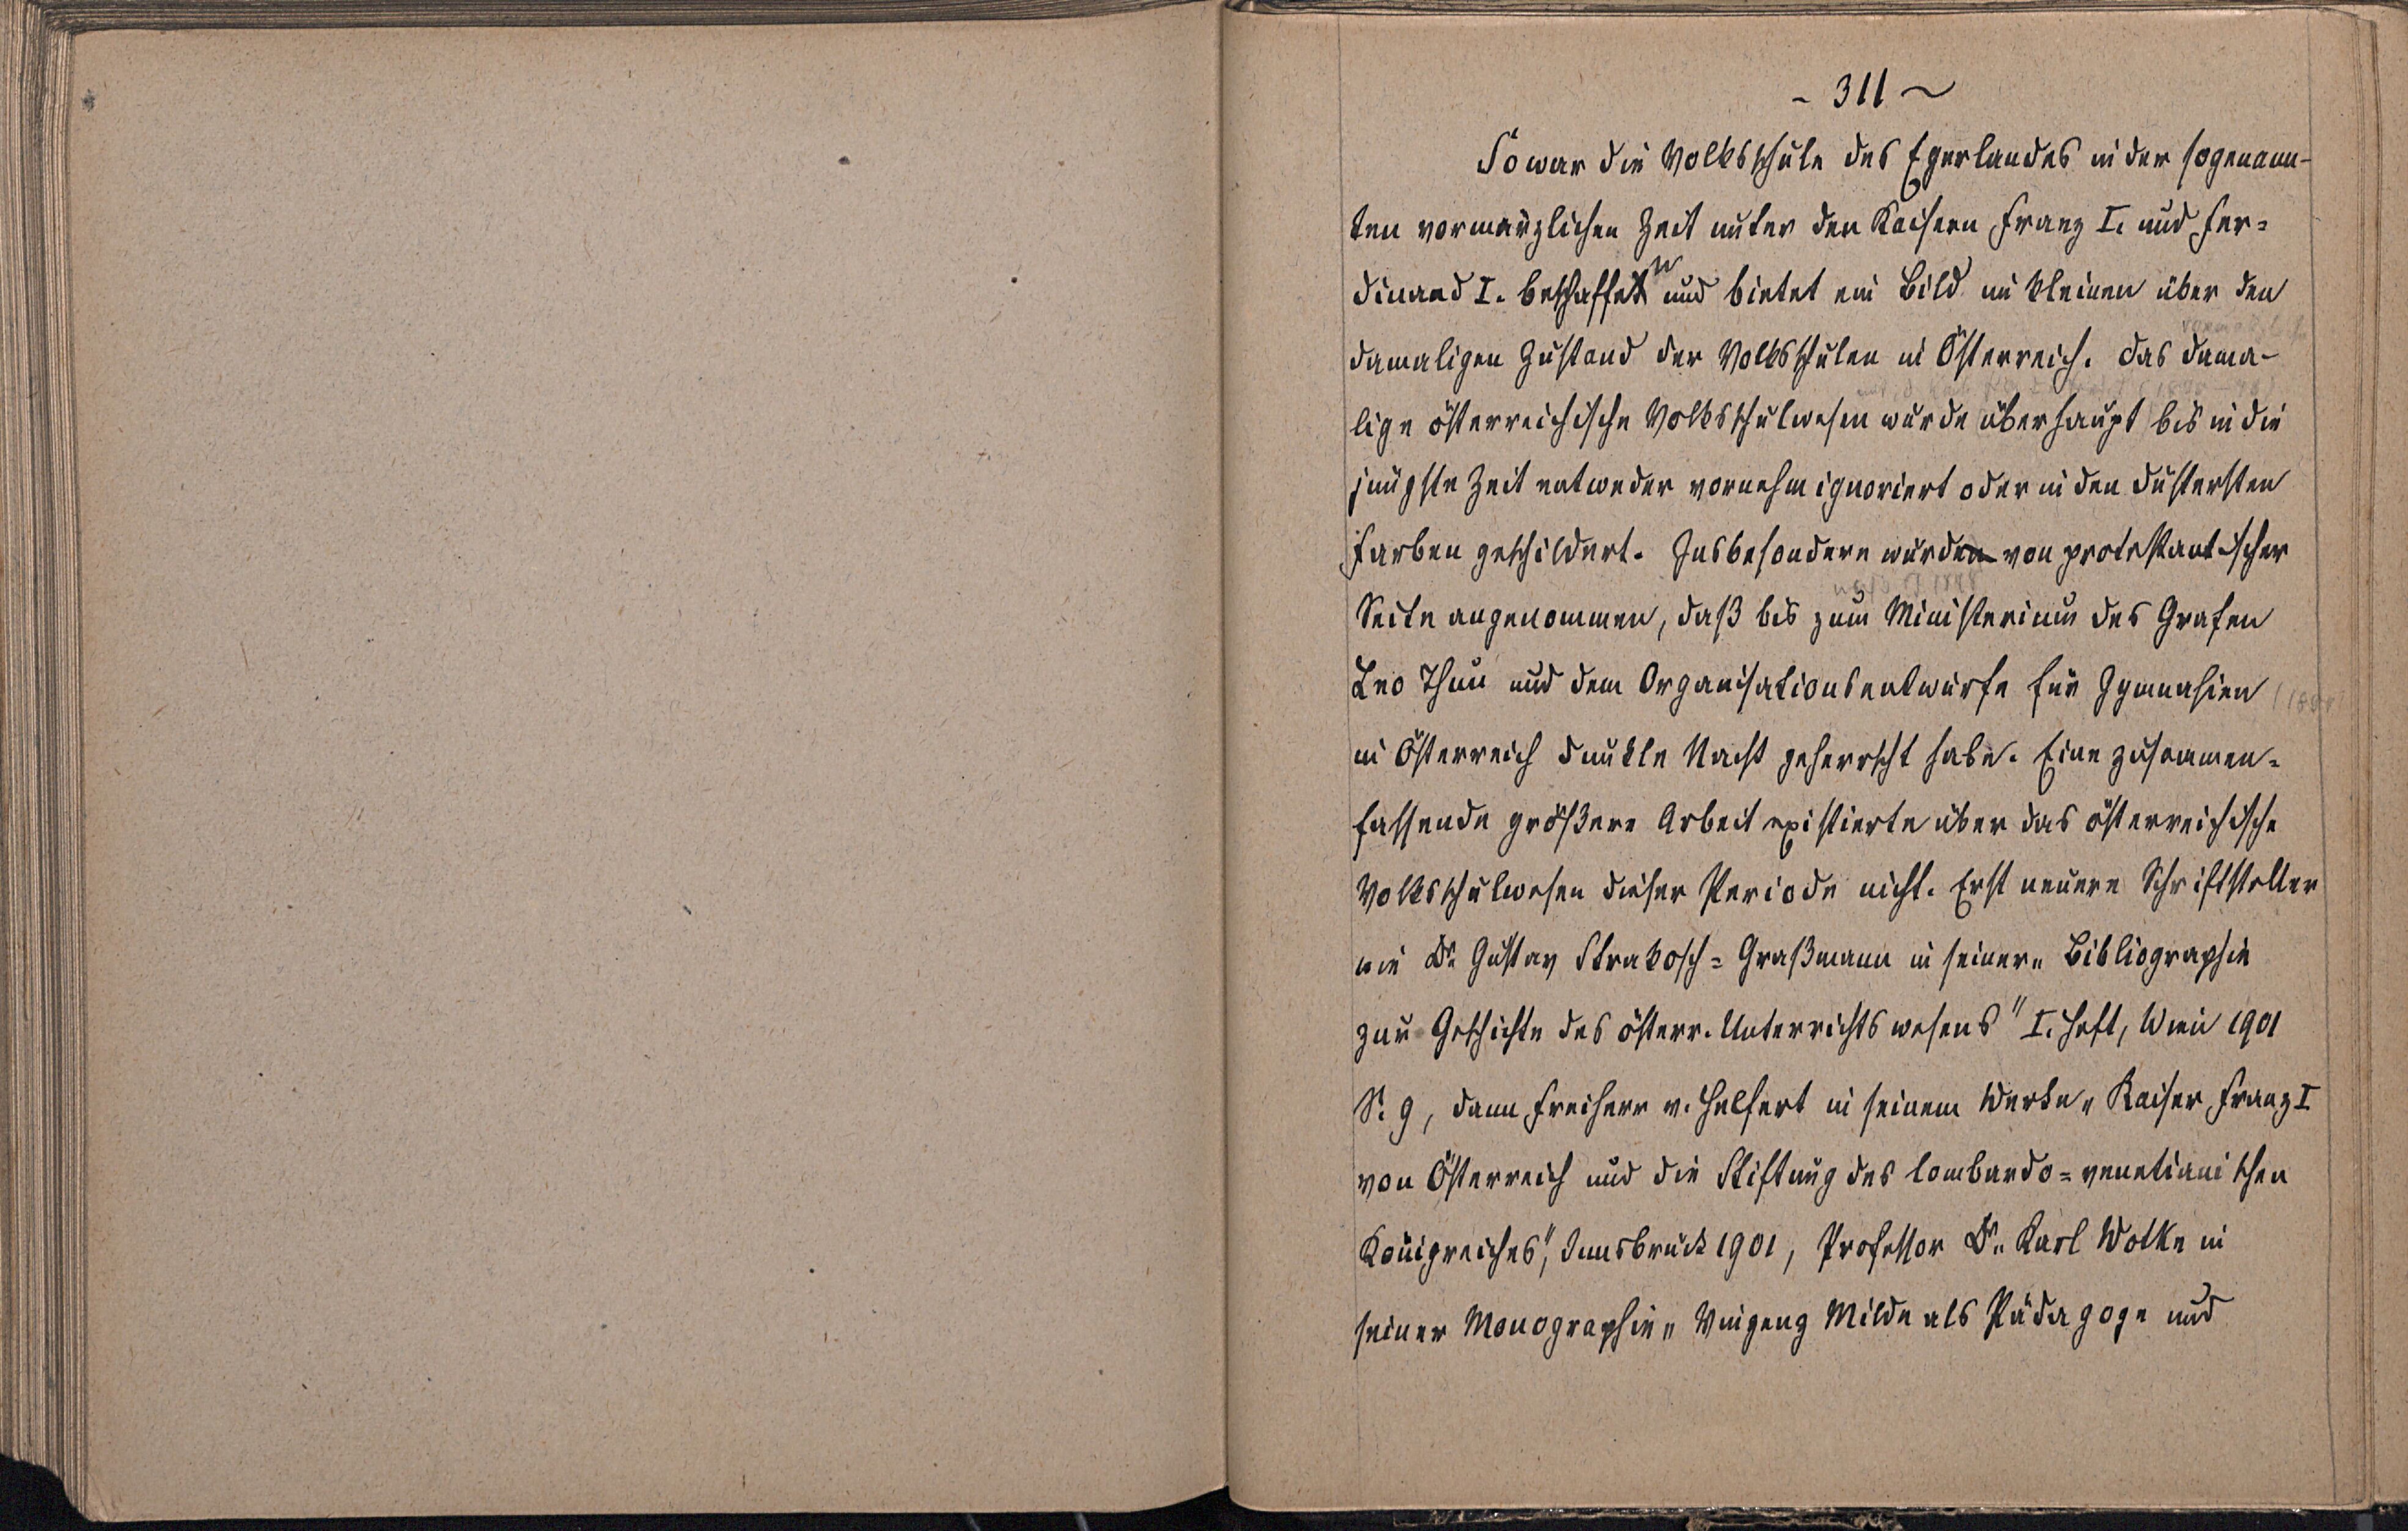 - 311 ~
So war die Volksschule des Egerlandes in der sogenann-
ten vormärzlichen Zeit unter den Kaisern Franz I. und Fer=
dinand I. beschaffen und bietet ein Bild im kleinen über den
damaligen Zustand der Volksschulen in Österreich. Das dama-
lige österreichische Volksschulwesen wurde überhaupt bis in die
jüngste Zeit entweder vornehm ignoriert oder in den düstersten
Farben geschildert. Insbesondere wurde von protestantischer
Seite angenommen, daß bis zum Ministerium des Grafen
Leo Thun und dem Organisationsentwurfe für Gymnasien
in Österreich dunkle Nacht geherrscht habe. Eine zusammen=
fassende größere Arbeit existierte über das österreichische
Volksschulwesen dieser Periode nicht. Erst neuere Schriftsteller
wie Dr. Gustav Strakosch=Graßmann in seiner „Bibliographie
zur Geschichte des österr. Unterrichtswesens" I. Heft, Wien 1901
S. 9, dann Freiherr v. Helfert in seinem Werke „Kaiser Franz I
von Österreich und die Stiftung des lombardo=venetianischen
Königreiches", Innsbruck 1901, Professor Dr. Karl Wotke in
seiner Monographie „Vinzenz Milde als Pädagoge und